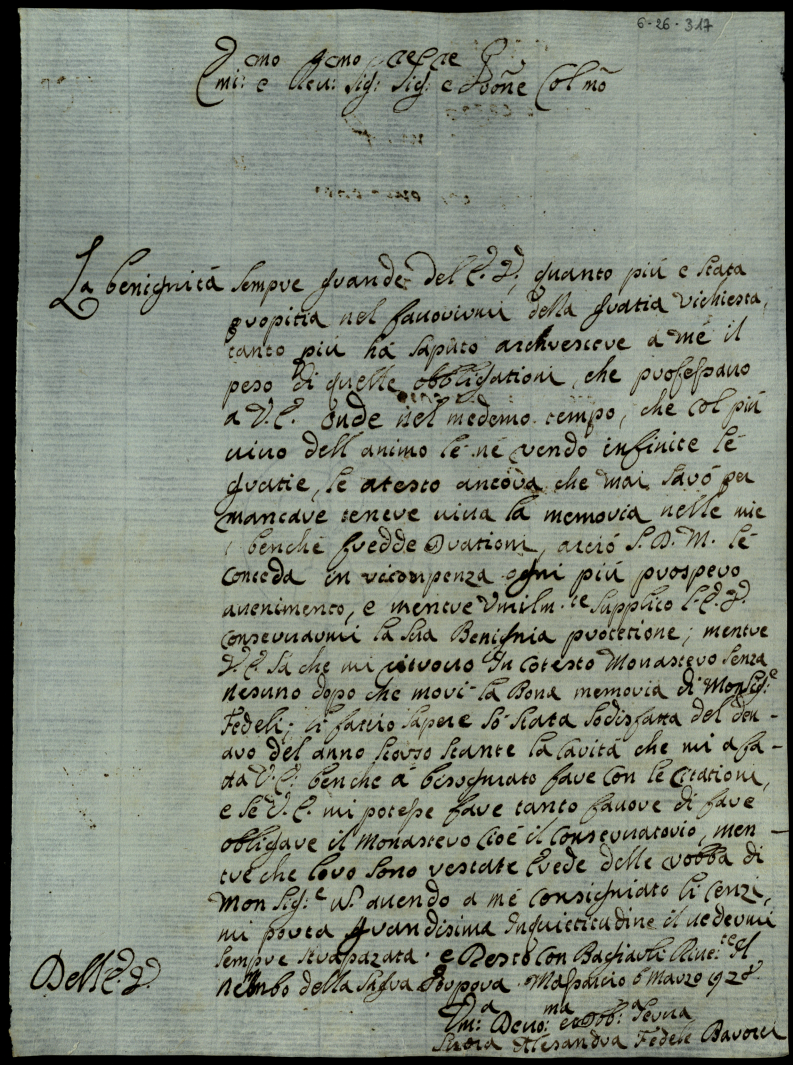 6-26-317
Emi:mo e Reu:mo Sig:re Sig:re e Prone Col mo
La benignità sempre grande del E. V. quanto più e stata
propitia nel fauorirmi della gratia richiesta,
tanto più hà saputo archrescere a mé il
peso di quelle obbligationi, che professauo
a V. E. onde nel medemo tempo, che col più
uiuo dell animo lé né rendo infinite lé
gratie, lé atesto ancora che mai sarò per
mancare tenere uiua la memoria nelle mie
benché fredde Orationi, acciò S. D. M. lé
conceda in ricompenza ogni più prospero
auenimento, e mentre Vmilm.te supplico l. E. V.
conseruarmi la sua Benignia protetione; mentre
V. E. sà che mi ritrouo In cotesto Monastero senza
nesuno dopo che morì la Bona memoria di Monsig:e
Fedeli; li faccio sapere só stata sodisfatta del den-
aro del anno scorso stante la carità che mi a fa-
tta V. E. benche à bisogniato fare con le Citationi,
e se V. E. mi potesse fare tanto fauore di fare
obbligare il Monastero cioé il Conseruatorio, men-
tre che loro sono restate Erede delle robba di
Mon Sig:e N. auendo a mé consigniato li cenzi,
mi porta Grandisima Inquietitudine il uedermi
sempre strapazata. e Resto con Baciarli Riue:te Il
nembo della Sagra Porpora. Masaccio 6 Marzo 1728
Dell E. V.
Um:a Deuo:ma ed Obb:a Serua
Suora Alesandra Fedeli